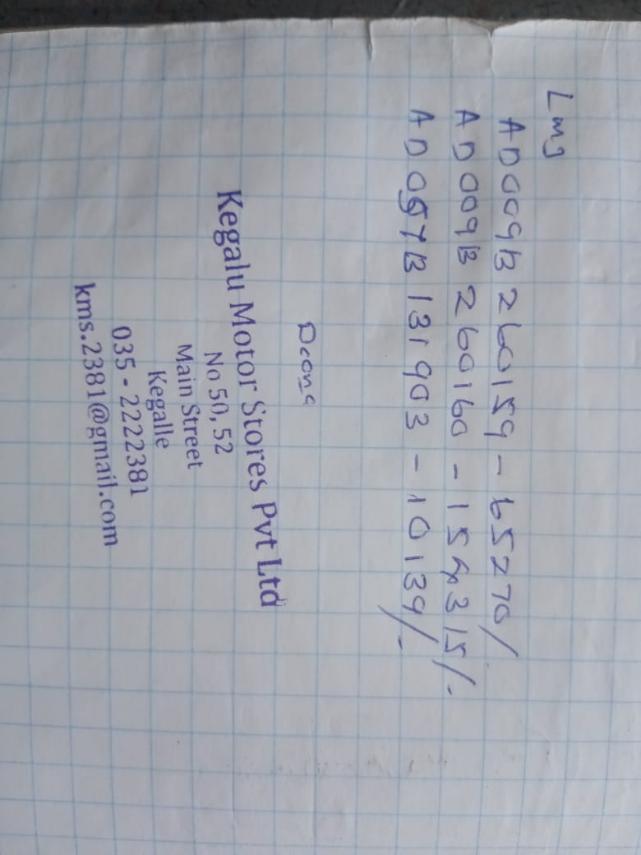 Lmg
AD009B260159 - 65270/
AD009B260160 - 154315/-
AD057B131903 - 10139/-
Kegalu Motor Stores Pvt Ltd
No 50, 52
Main Street
Kegalle
035 - 2222381
kms.2381@gmail.com